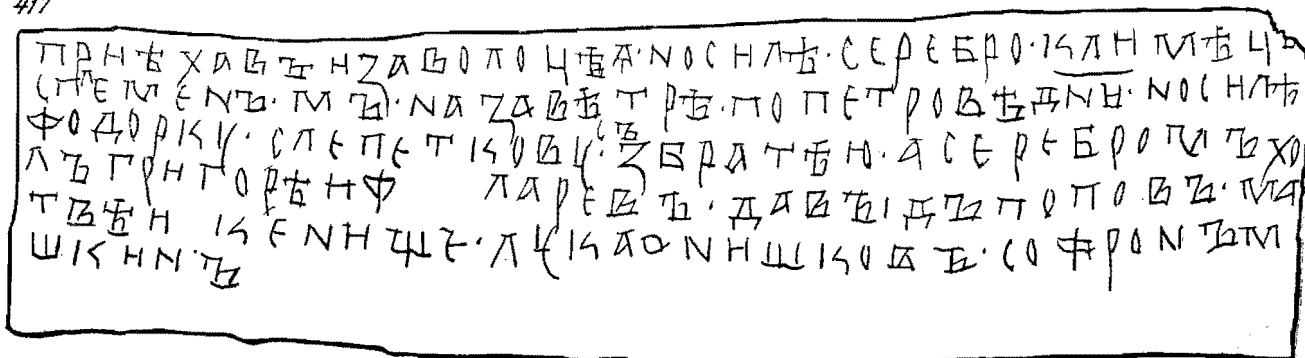 417
ПРИѢХАВЪИЗАВОЛОЦѢА·НОСИЛѢ·СЕРЕБРО·КЛИМѢЦѢ
СПЛЕМЕНЪ·МЪ·НАЗАВѢТРѢ·ПОПЕТРОВѢДНИ·НОСИЛѢ
ФОДОРКУ·СЛЕПЕТКОВУ·СЪЗБРАТѢЮ·АСЕРЕБРОМЪХО
ЛЪГРИГОРѢИФ ЛАРЕВЪ·ДАВЪІДЪПОПОВЪ·МА
ТВѢИ КЕНИЩЕ·ЛУКАОНИШКОВЪ·СОФРОНЪМ
ШКИН·Ъ